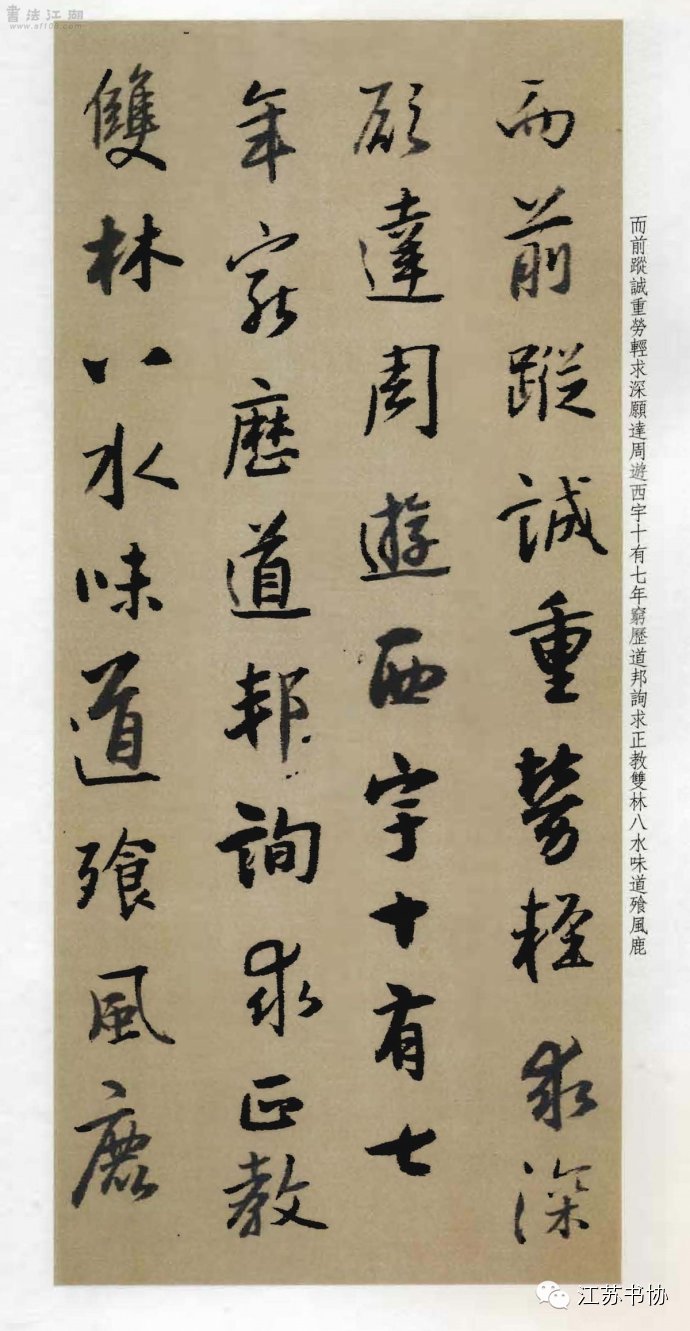 書法江湖
www.sf108.com
而前蹤誠重勞輕求深
願達周遊西宇十有七
年窮歷道邦詢求正教
雙林八水味道飡風鹿
而前蹤誠重勞輕求深願達周遊西宇十有七年窮歷道邦詢求正教雙林八水味道飡風鹿
江苏书协